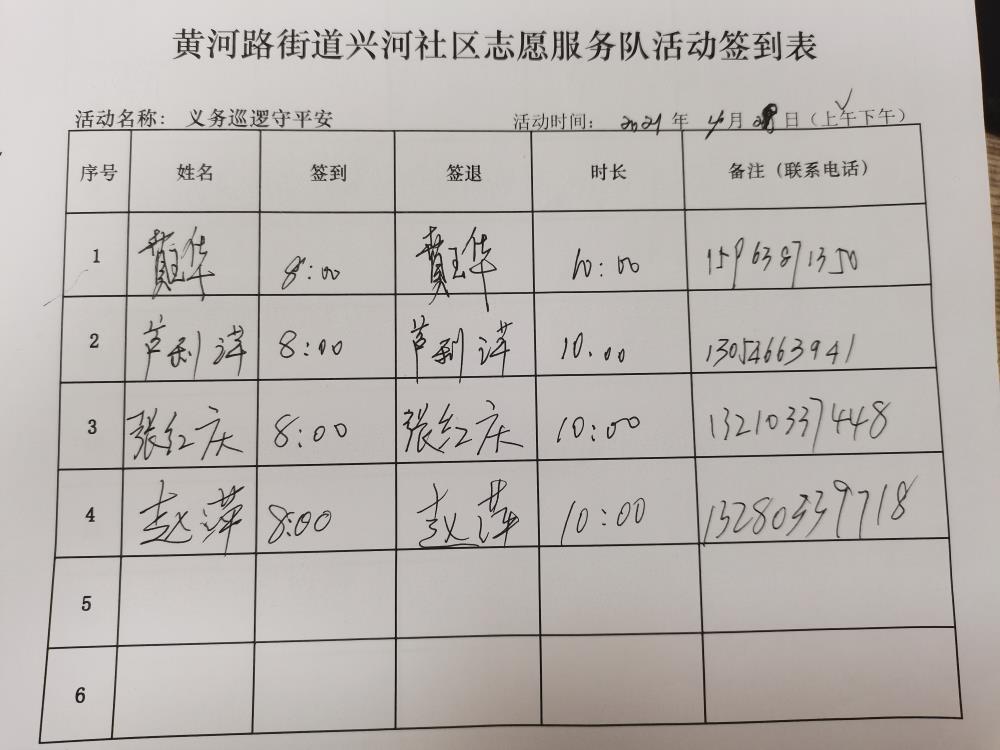 黄河路街道兴河社区志愿服务队活动签到表
活动名称：义务巡逻守平安 活动时间：2021年4月28日（上午下午）
序号 姓名 签到 签退 时长 备注（联系电话）
1 8:00 10:00 15963871350
2 芦利洋 8:00 芦利洋 10:00 13054663941
3 张红庆 8:00 张红庆 10:00 13210337448
4 赵萍 8:00 赵萍 10:00 13280339718
5
6